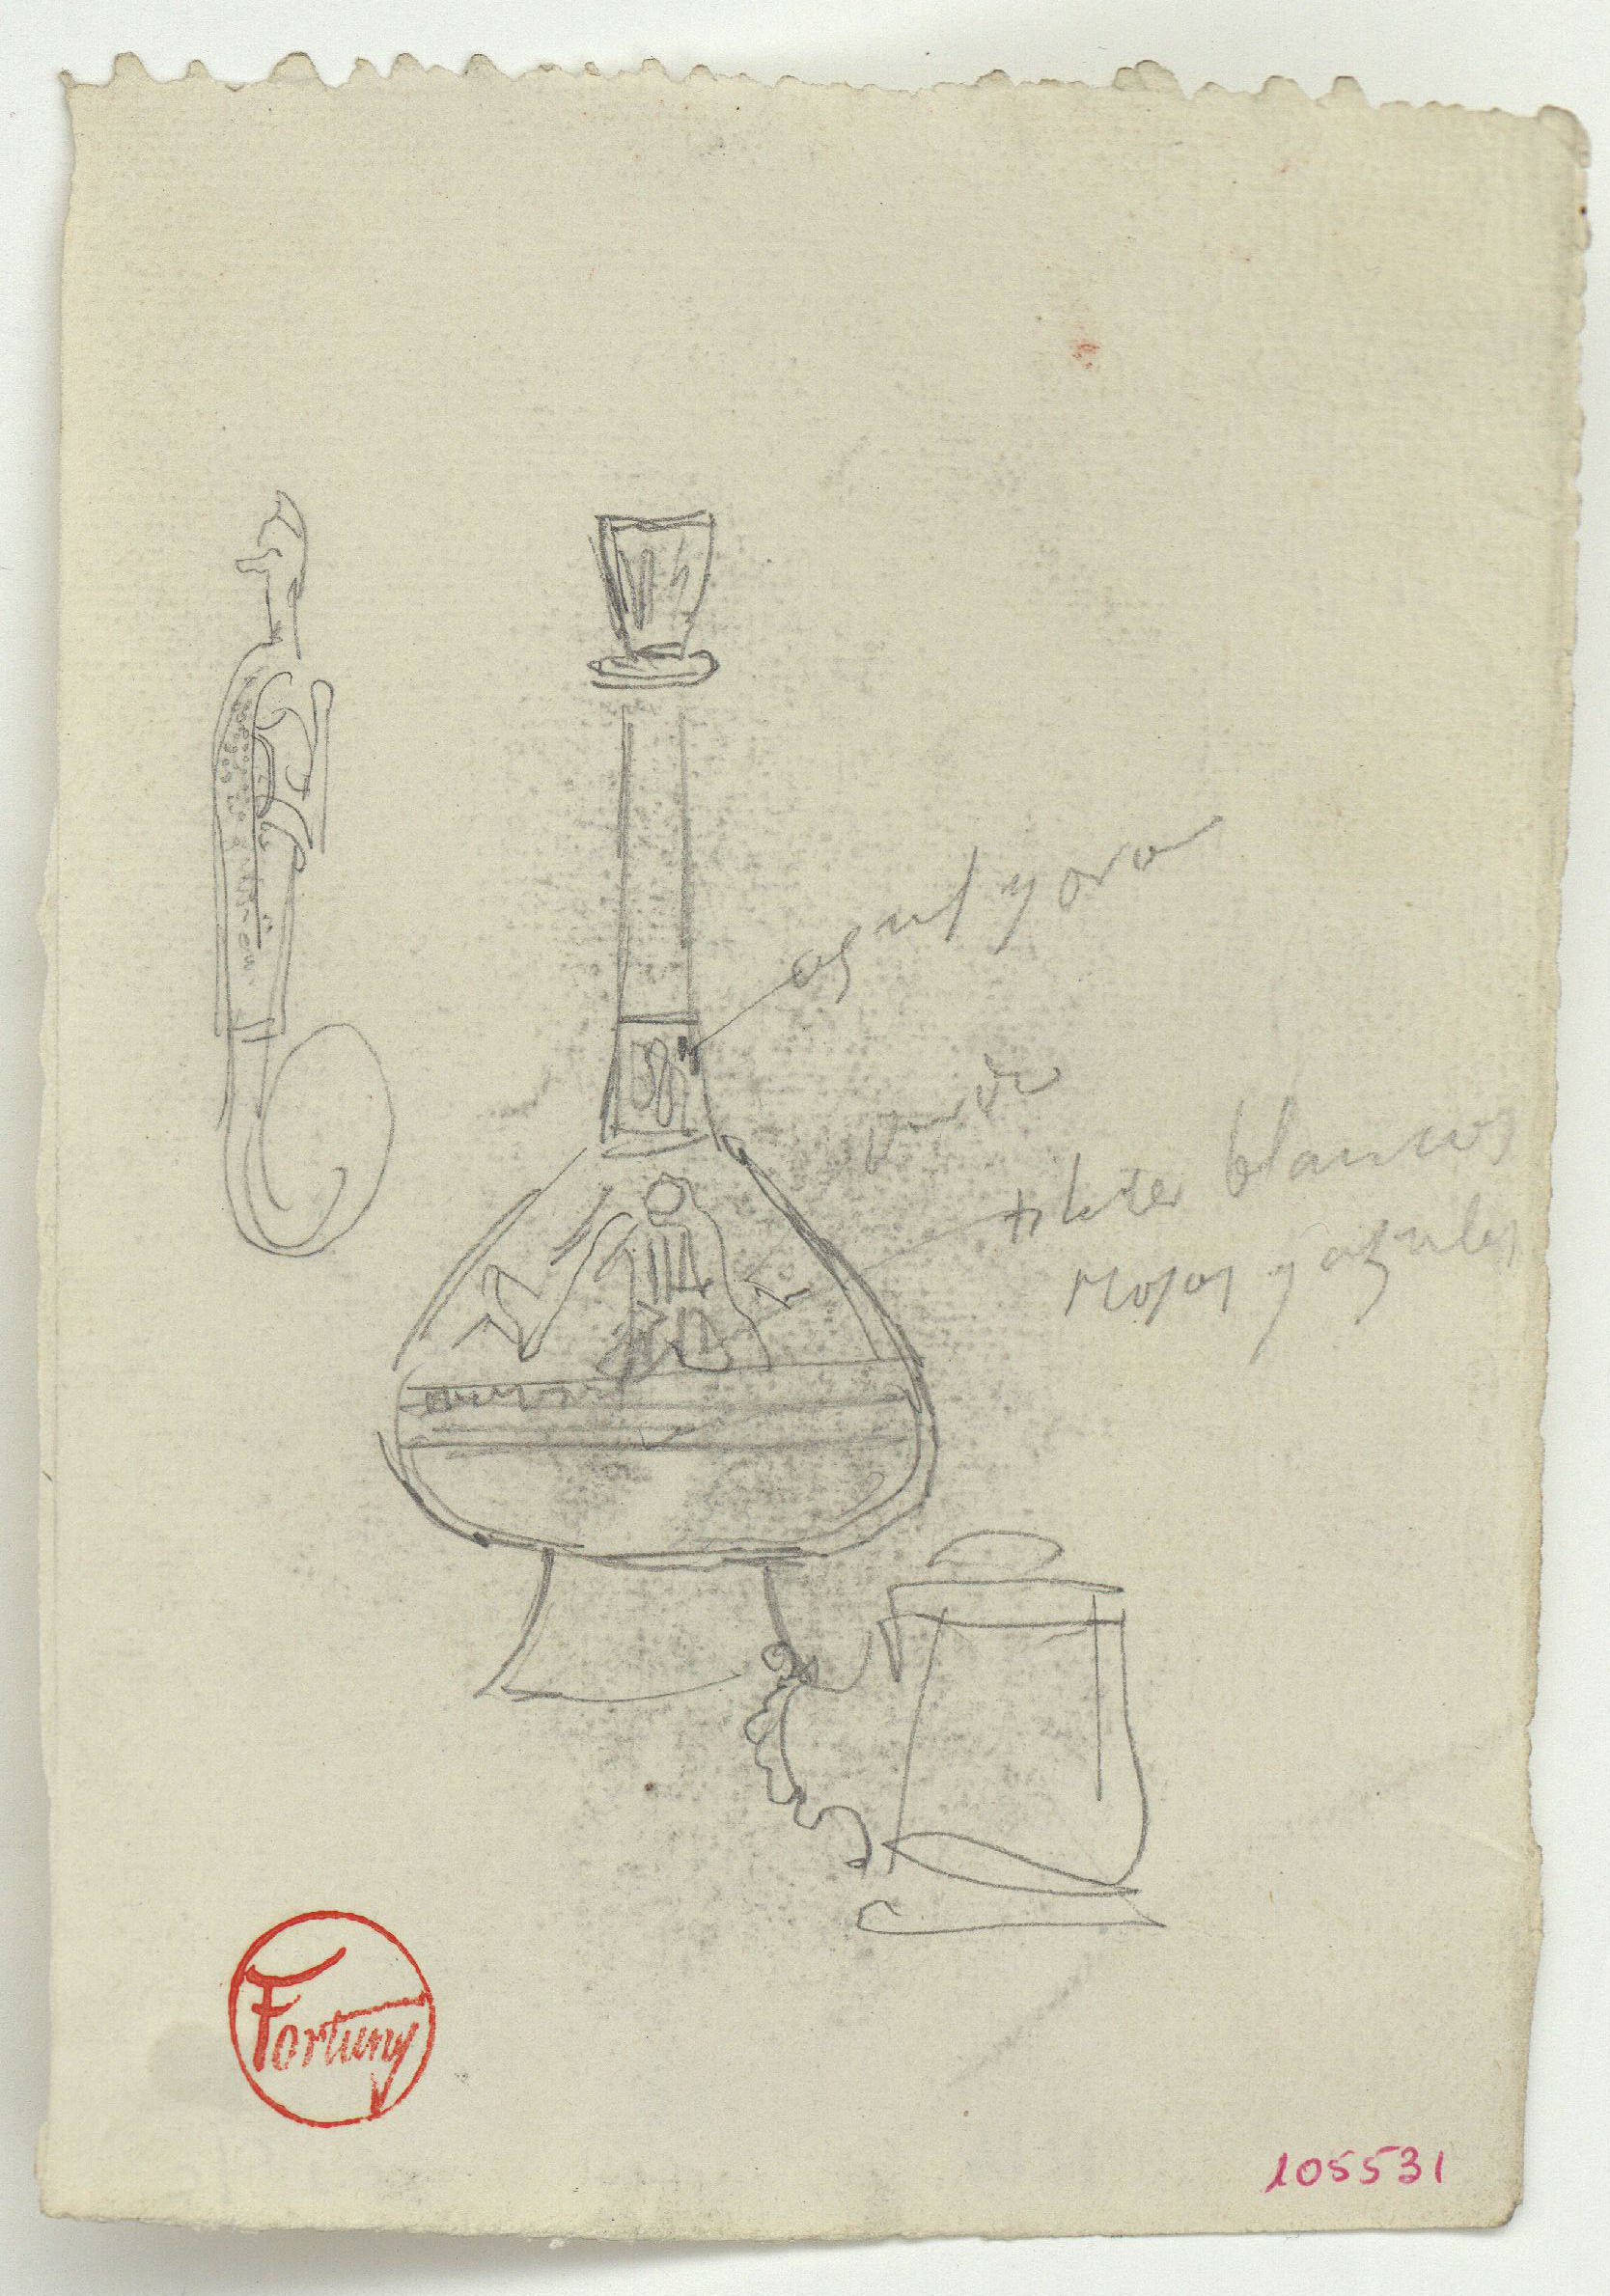 azul y oro
verde
filetes blancos
rojos y azules
Fortuny
105531